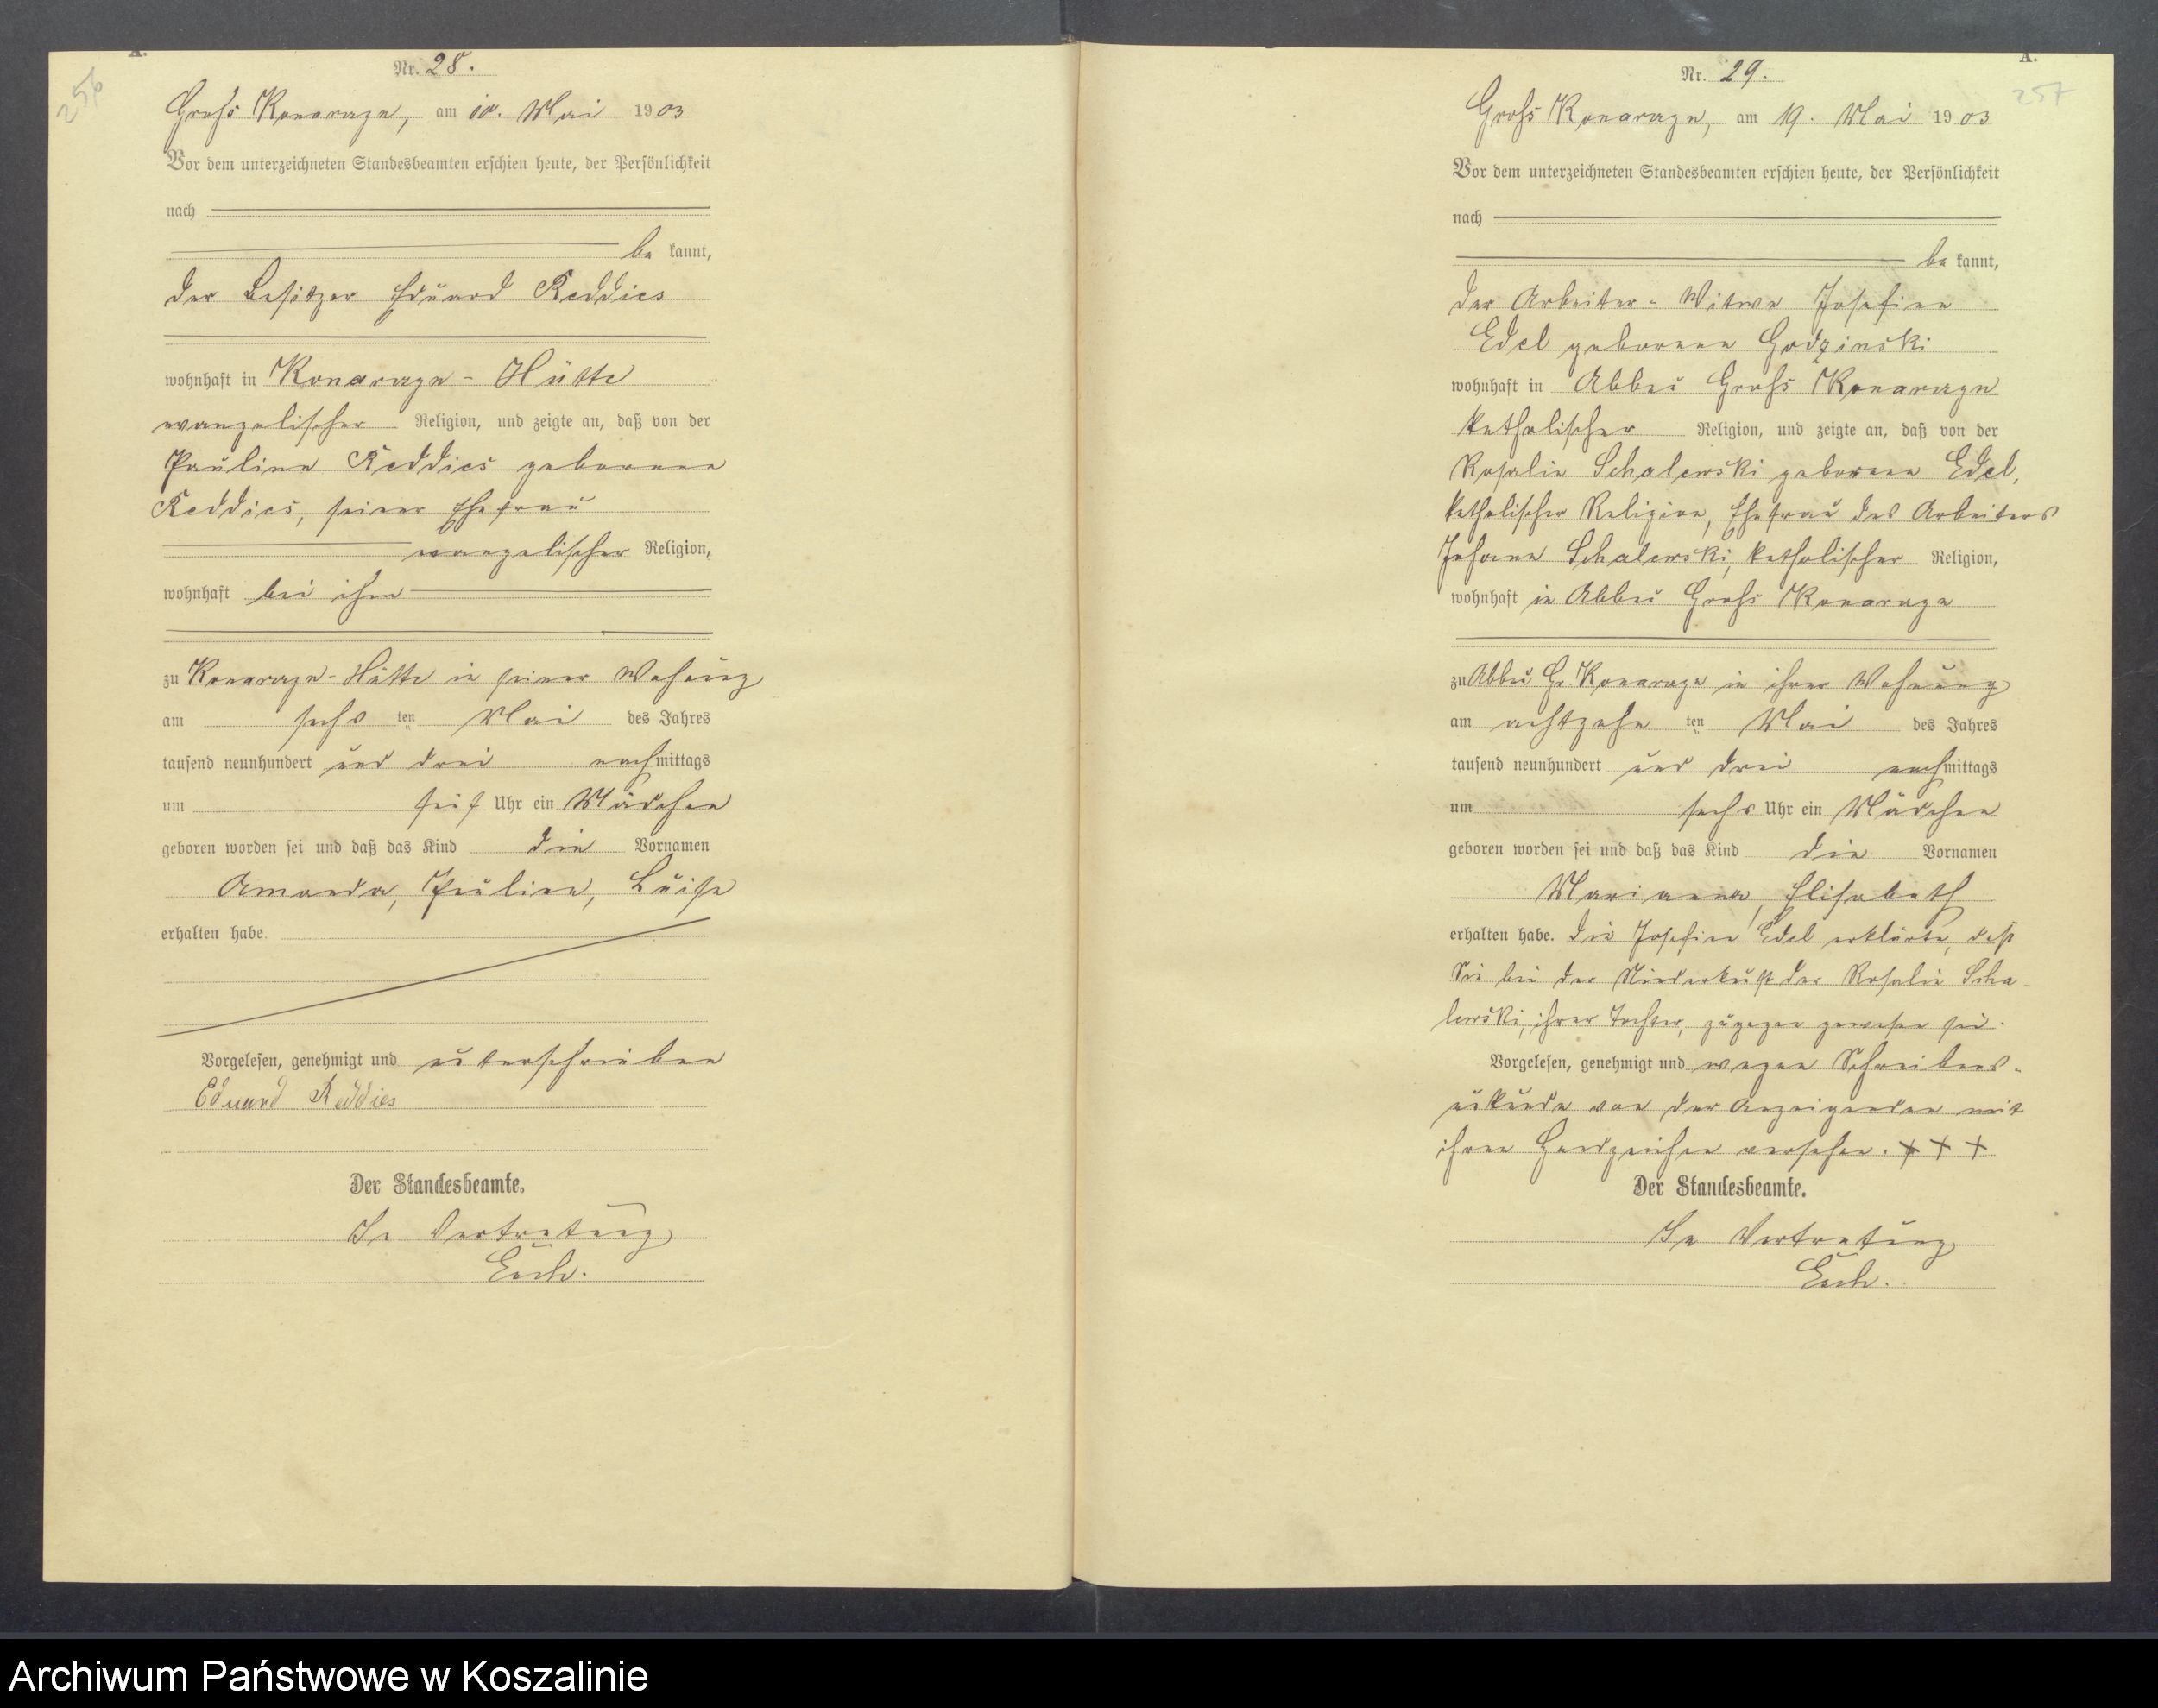 A.
256
Nr. 28.
Groß Konarczyn, am 10. Mai 1903
Vor dem unterzeichneten Standesbeamten erschien heute, der Persönlichkeit
nach
be kannt,
der Besitzer Eduard Reddies
wohnhaft in Konarczyn-Hütte
evangelischer Religion, und zeigte an, daß von der
Pauline Reddies geborenen
Reddies, seiner Ehefrau
evangelischer Religion,
wohnhaft bei ihm
zu Konarczyn-Hütte in seiner Wohnung
am sechs ten Mai des Jahres
tausend neunhundert und drei nachmittags
um fünf Uhr ein Mädchen
geboren worden sei und daß das Kind die Vornamen
Amanda, Pauline, Luise
erhalten habe.
Vorgelesen, genehmigt und unterschrieben
Eduard Reddies
Der Standesbeamte.
In Vertretung
A.
257
Nr. 29.
Groß Konarczyn, am 19. Mai 1903
Vor dem unterzeichneten Standesbeamten erschien heute, der Persönlichkeit
nach
be kannt,
der Arbeiter-Witwe Josefine
Edel geborenen Godzinski
wohnhaft in Abbau Groß Konarczyn
katholischer Religion, und zeigte an, daß von der
Rosalie Schalewski geborenen Edel,
katholischer Religion, Ehefrau des Arbeiters
Johann Schalewski, katholischer Religion,
wohnhaft in Abbau Groß Konarczyn
zu Abbau Gr. Konarczyn in ihrer Wohnung
am achtzehn ten Mai des Jahres
tausend neunhundert und drei nachmittags
um sechs Uhr ein Mädchen
geboren worden sei und daß das Kind die Vornamen
Marianna, Elisabeth
erhalten habe. Die Josefine Edel erklärte, daß
Sie bei der Niederkunft der Rosalie Scha-
lewski, ihrer Tochter, zugegen gewesen sei.
Vorgelesen, genehmigt und wegen Schreibens-
unkunde von der Anzeigenden mit
ihren Handzeichen versehen. + + +
Der Standesbeamte.
In Vertretung
Archiwum Państwowe w Koszalinie